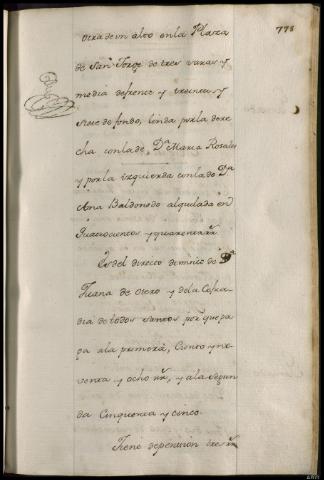 778
Otra de un alto en la Plaza
de San Jorge de tres varas y
media de frente y treinta y
siete de fondo, linda por la dere
cha con la de Dª Maria Rosales
y por la izquierda con la de Dª
Ana Baldonedo alquilada en
Quatrocientos y quarenta rr
Es del directo dominio de Dª
Juana de Otero y de la Cofra
dia de todos santos por que pa
ga a la primera, Ciento y no
venta y ocho rr, y a la segun
da Cinquenta y cinco
Tiene de pension tres rr